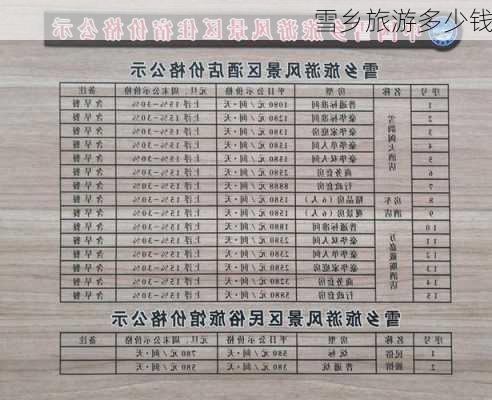 雪乡旅游多少钱
中国雪乡旅游风景区住宿价格公示
雪乡旅游风景区酒店价格公示
序号 名称 房型 平日公示价格 元旦、周末公示价格 备注
1 普通标准间 1080 元/间·天 上浮15%-30% 含早餐
2 豪华标准间 1280 元/间·天 上浮15%-30% 含早餐
3 豪华家庭房 1380 元/间·天 上浮15%-30% 含早餐
4 大酒店 豪华单人间 元/间·天 上浮15%-30% 含早餐
5 豪华双人间 元/间·天 上浮15%-30% 含早餐
6 商务套房 2580 元/间·天 上浮15%-30% 含早餐
7 行政套房 8888 元/间·天 上浮15%-30% 含早餐
8 房车酒店 精品房(6人) 1580 元/间·天 上浮15%-30% 含早餐
9 观景房(6人) 元/间·天 上浮15%-30% 含早餐
10 普通标准间 元/间·天 上浮15%-30% 含早餐
11 酒店 豪华双人间 2380 元/间·天 上浮15%-30% 含早餐
12 豪华单人间 2380 元/间·天 上浮15%-30% 含早餐
13 豪华家庭房 元/间·天 上浮15%-30% 含早餐
14 商务套房 元/间·天 上浮15%-30% 含早餐
15 行政套房 5880 元/间·天 上浮15%-30% 含早餐
雪乡旅游风景区民俗旅馆价格公示
序号 名称 房型 平日公示价格 元旦、周末公示价格 备注
1 民俗旅馆 炕 580 元/间·天 780 元/间·天
2 普通炕 380 元/间·天 580 元/间·天